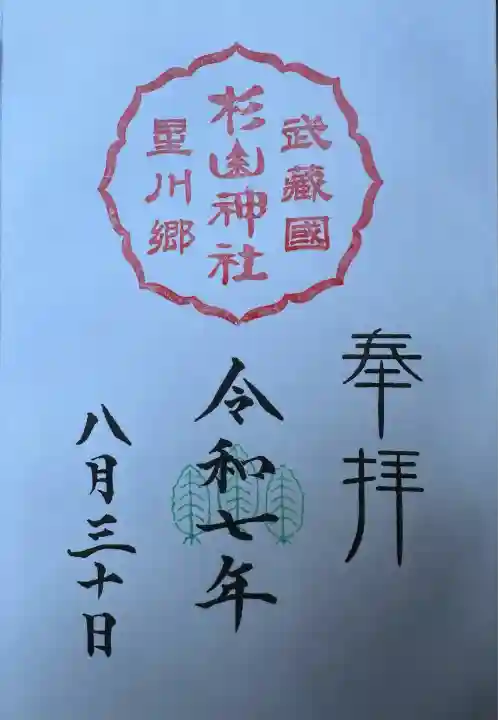 武藏國
杉山神社
星川郷
奉拝
令和七年
八月三十日